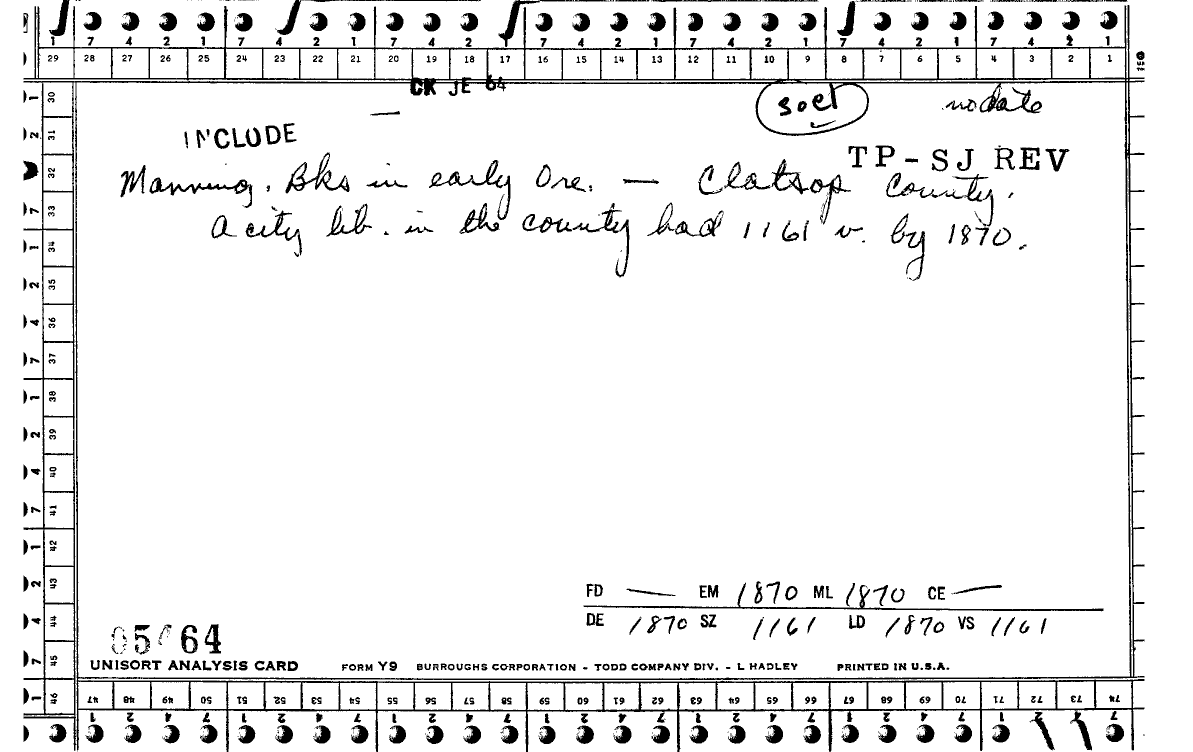 1 7 4 2 1 7 4 2 1 7 4 2 1 7 4 2 1 7 4 2 1 7 4 2 1 7 4 2 1
29 28 27 26 25 24 23 22 21 20 19 18 17 16 15 14 13 12 11 10 9 8 7 6 5 4 3 2 1
CK JE 64
soel no date
INCLUDE
TP-SJ REV
Manning. Bks in early Ore. — Clatsop County.
A city lib. in the county had 1161 v. by 1870.
1 30
2 31
32
7 33
1 34
2 35
4 36
7 37
1 38
2 39
4 40
7 41
1 42
2 43
4 44
7 45
1 46
FD — EM 1870 ML 1870 CE —
DE 1870 SZ 1161 LD 1870 VS 1161
64
UNISORT ANALYSIS CARD FORM Y9 BURROUGHS CORPORATION - TODD COMPANY DIV. - L HADLEY PRINTED IN U.S.A.
47 48 49 50 51 52 53 54 55 56 57 58 59 60 61 62 63 64 65 66 67 68 69 70 71 72 73 74
1 2 4 7 1 2 4 7 1 2 4 7 1 2 4 7 1 2 4 7 1 2 4 7 1 2 4 7